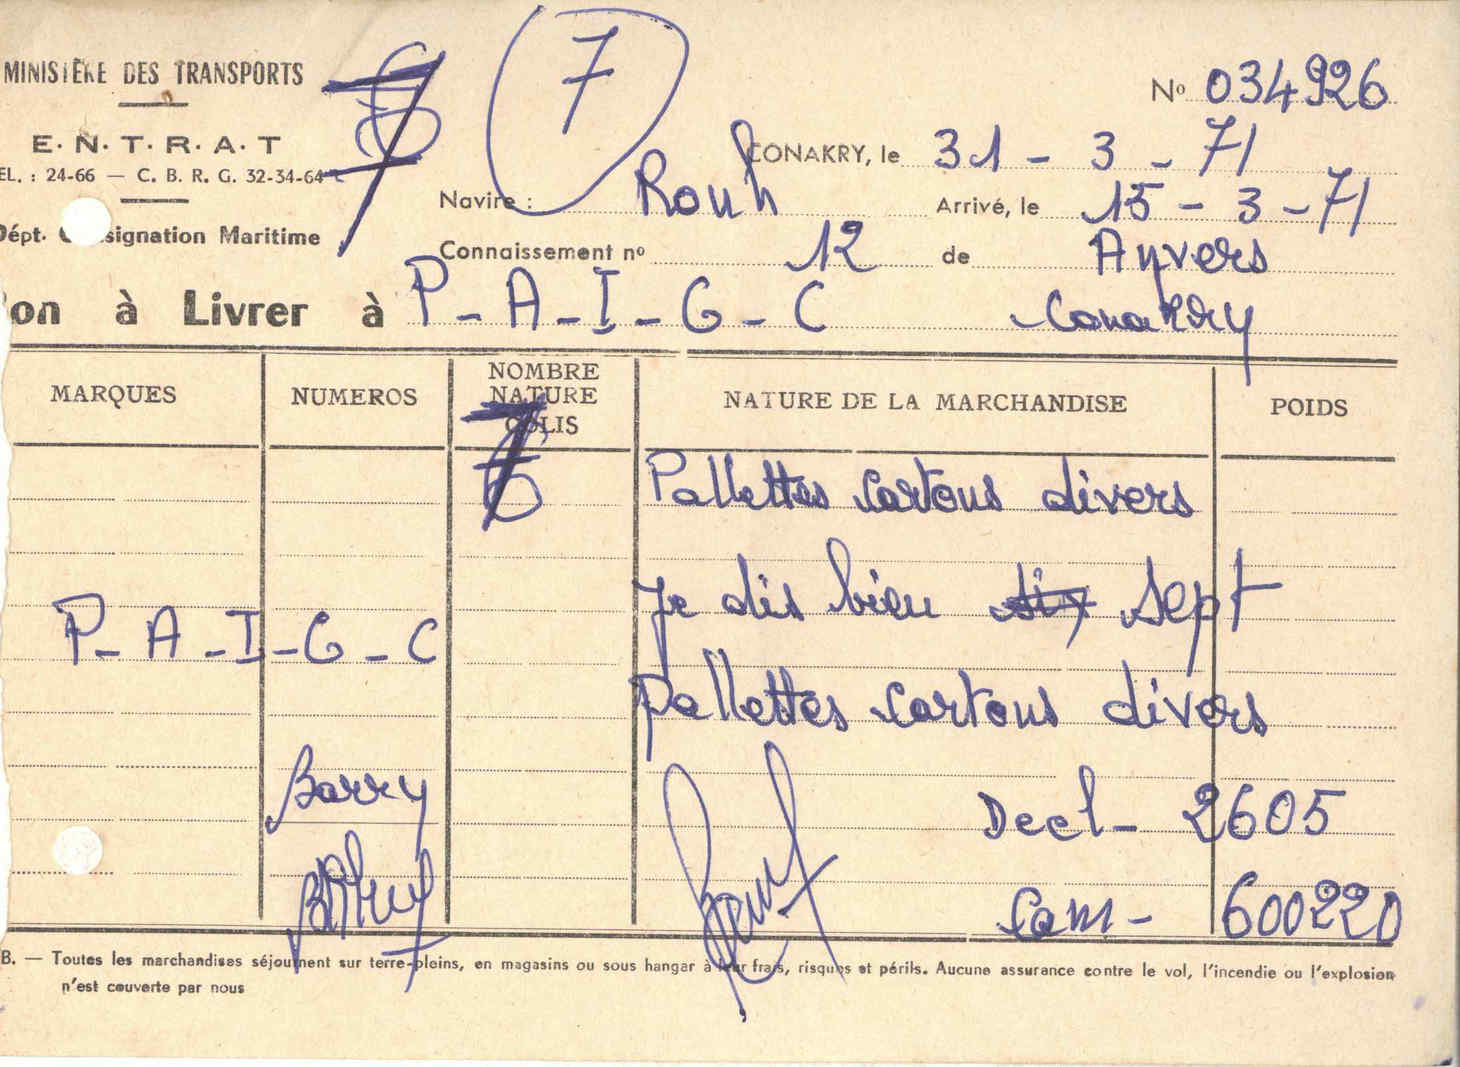 MINISTÈRE DES TRANSPORTS
7
Nº 034926
E. N. T. R. A. T
EL. : 24-66 — C. B. R. G. 32-34-64
CONAKRY, le 31 - 3 - 71
Navire : Rouh
Arrivé, le 15 - 3 - 71
Dépt. signation Maritime
Connaissement nº 12 de Anvers
on à Livrer à P - A - I - G - C Conakry
MARQUES NUMEROS NOMBRE NATURE COLIS NATURE DE LA MARCHANDISE POIDS
7 Pallettes cartons divers
Je dis bien six sept
P - A - I - G - C
pallettes cartons divers
Barry
Decl - 2605
Cam - 600220
B. — Toutes les marchandises séjournent sur terre-pleins, en magasins ou sous hangar à leur frais, risques et périls. Aucune assurance contre le vol, l'incendie ou l'explosion
n'est couverte par nous